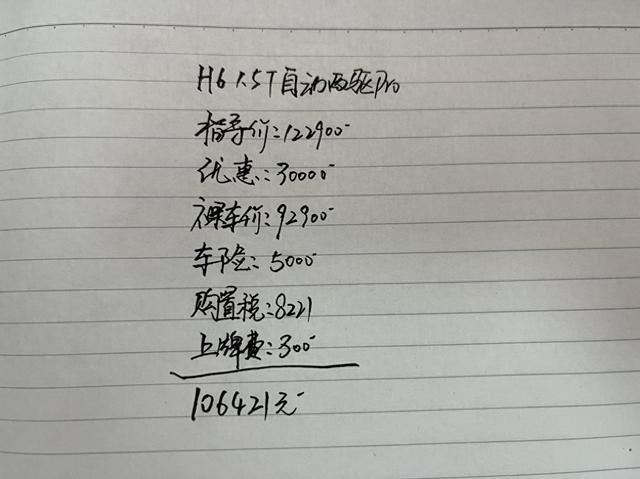 H6 1.5T自动两驱Pro
指导价:122900-
优惠:30000-
裸车价:92900-
车险:5000-
购置税:8221
上牌费:300-
106421元-